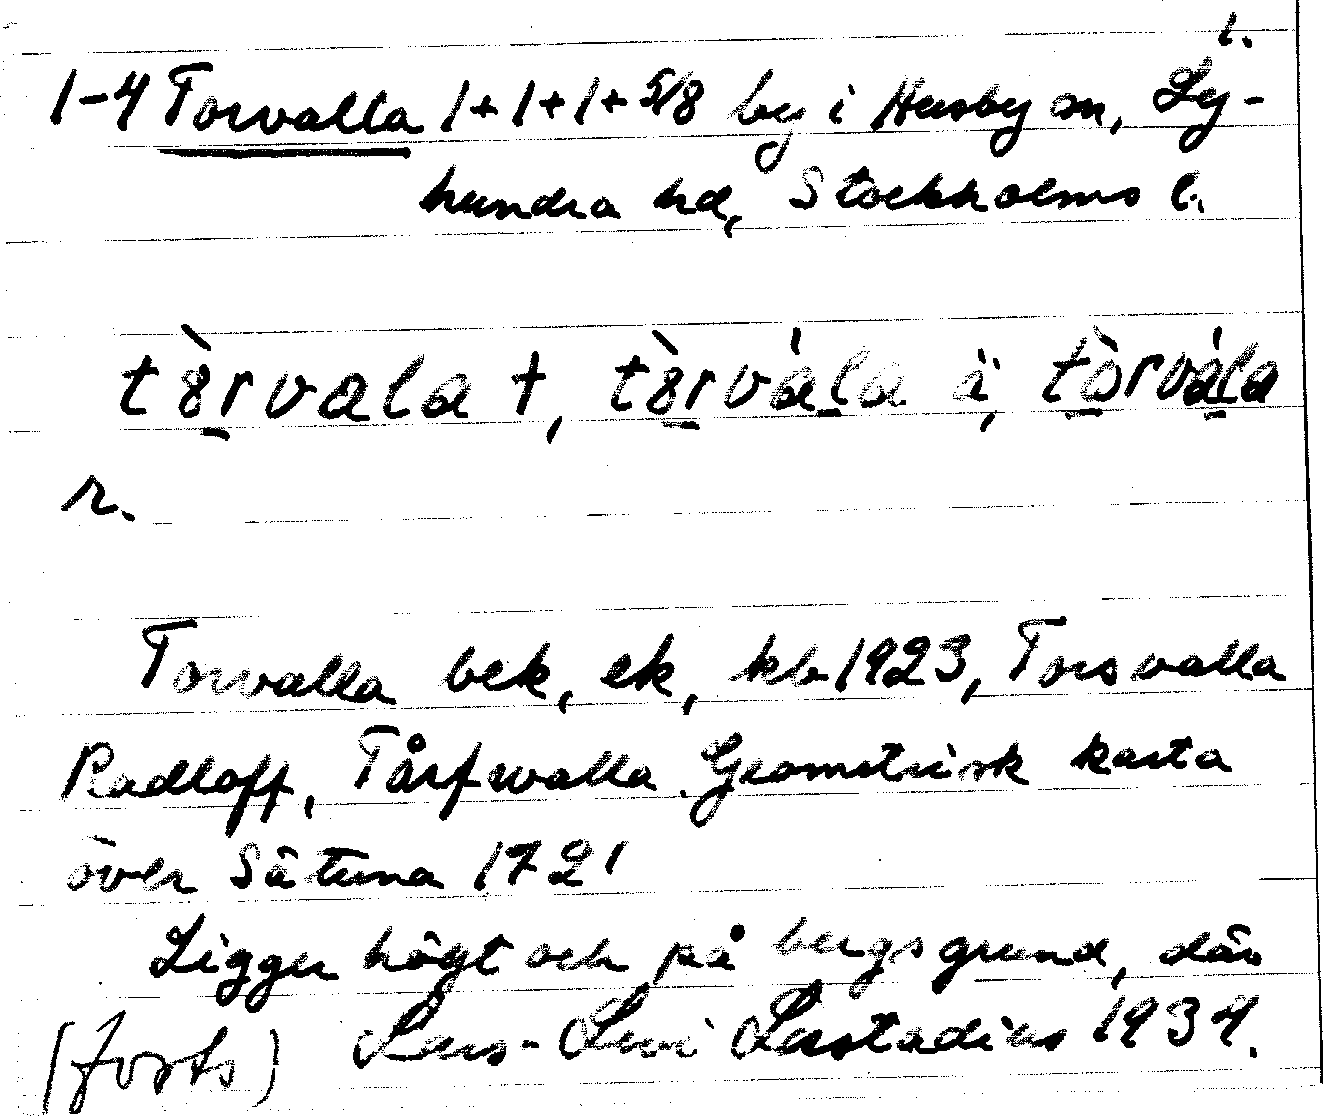 1.
1-4 Torvalla 1+1+1+5/8 by i Husby sn, Ly-
hundra hd, Stockholms l.
tòrvala t, tòrvála ä, tòrvála
r.
Torvalla bek, ek, kb 1923, Torsvalla
Radloff, Tårfwalla Geometrisk karta
över Sätuna 1721
Ligger högt och på bergsgrund, där
(forts) Lars-Levi Læstadius 1934.